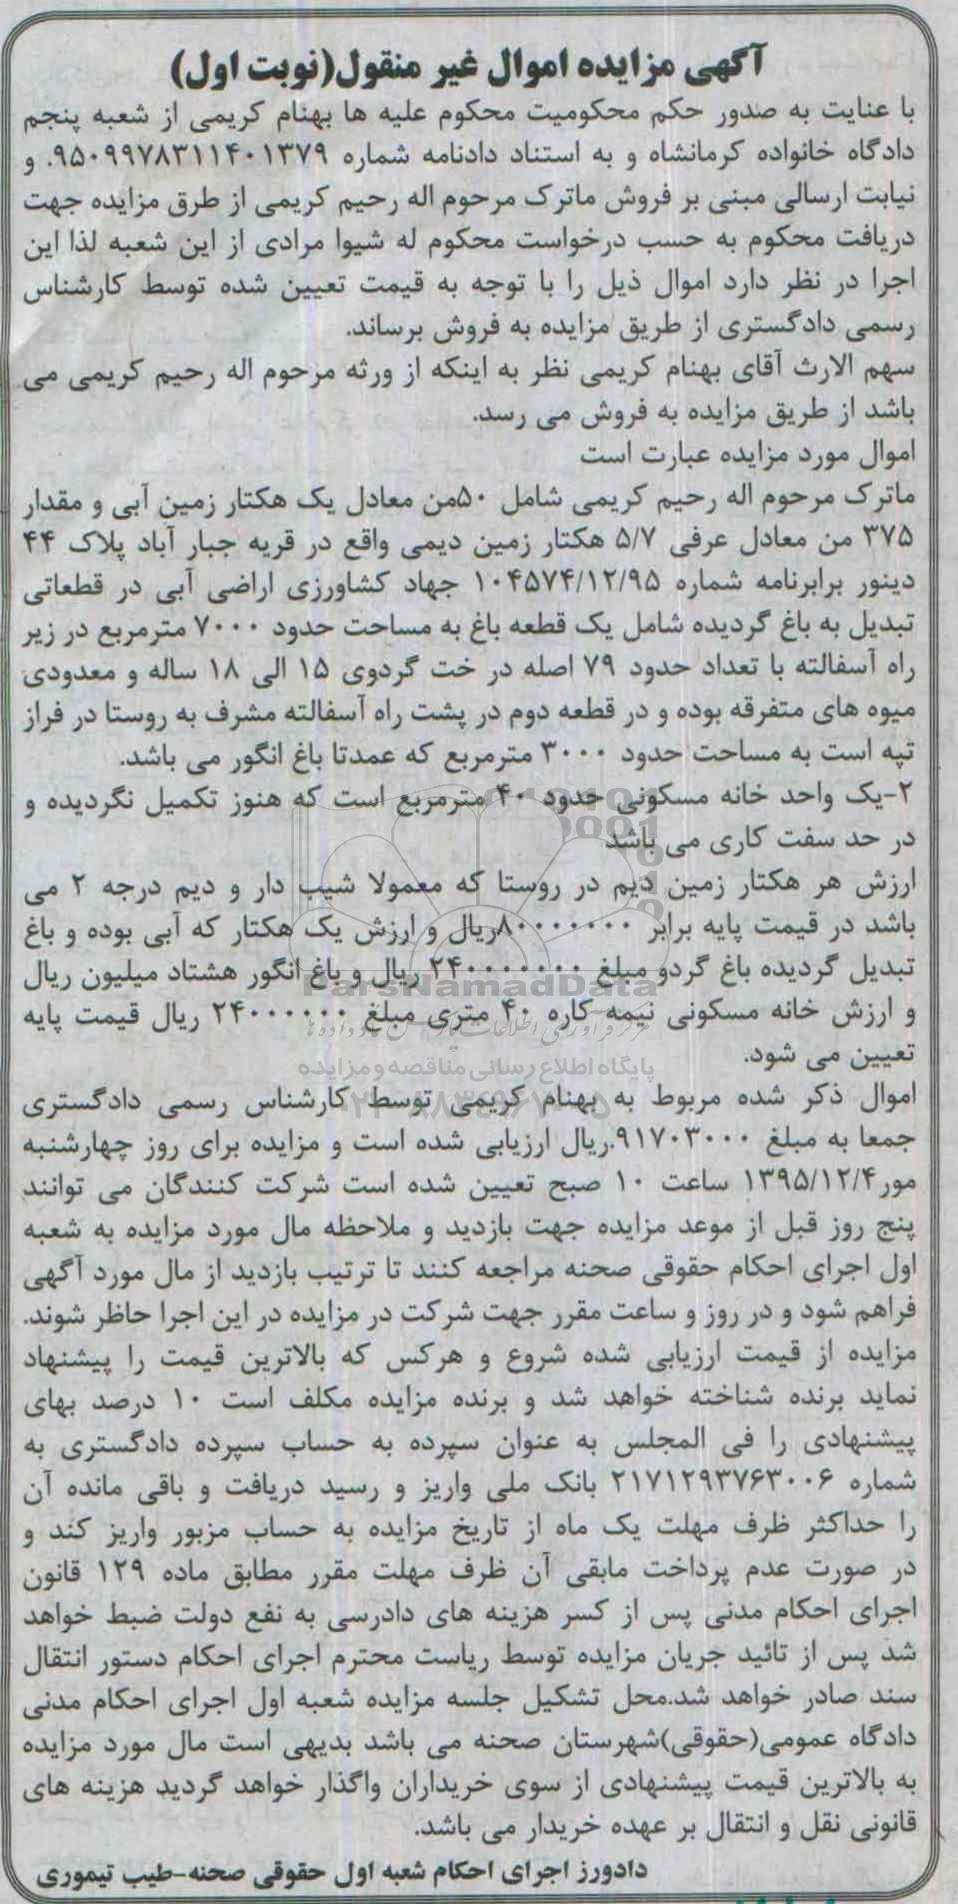 آگهی مزایده اموال غیر منقول(نوبت اول)
با عنایت به صدور حکم محکومیت محکوم علیه ها بهنام کریمی از شعبه پنجم
دادگاه خانواده کرمانشاه و به استناد دادنامه شماره ۹۵۰۹۹۷۸۳۱۱۴۰۱۳۷۹. و
نیابت ارسالی مبنی بر فروش ماترک مرحوم اله رحیم کریمی از طرق مزایده جهت
دریافت محکوم به حسب درخواست محکوم له شیوا مرادی از این شعبه لذا این
اجرا در نظر دارد اموال ذیل را با توجه به قیمت تعیین شده توسط کارشناس
رسمی دادگستری از طریق مزایده به فروش برساند.
سهم الارث آقای بهنام کریمی نظر به اینکه از ورثه مرحوم اله رحیم کریمی می
باشد از طریق مزایده به فروش می رسد.
اموال مورد مزایده عبارت است
ماترک مرحوم اله رحیم کریمی شامل ۵۰من معادل یک هکتار زمین آبی و مقدار
۳۷۵ من معادل عرفی ۵/۷ هکتار زمین دیمی واقع در قریه جبار آباد پلاک ۴۴
دینور برابرنامه شماره ۱۰۴۵۷۴/۱۲/۹۵ جهاد کشاورزی اراضی آبی در قطعاتی
تبدیل به باغ گردیده شامل یک قطعه باغ به مساحت حدود ۷۰۰۰ مترمربع در زیر
راه آسفالته با تعداد حدود ۷۹ اصله در خت گردوی ۱۵ الی ۱۸ ساله و معدودی
میوه های متفرقه بوده و در قطعه دوم در پشت راه آسفالته مشرف به روستا در فراز
تپه است به مساحت حدود ۳۰۰۰ مترمربع که عمدتا باغ انگور می باشد.
۲-یک واحد خانه مسکونی حدود ۴۰ مترمربع است که هنوز تکمیل نگردیده و
در حد سفت کاری می باشد
ارزش هر هکتار زمین دیم در روستا که معمولا شیب دار و دیم درجه ۲ می
باشد در قیمت پایه برابر ۸۰۰۰۰۰۰۰ریال و ارزش یک هکتار که آبی بوده و باغ
تبدیل گردیده باغ گردو مبلغ ۲۴۰۰۰۰۰۰۰ ریال و باغ انگور هشتاد میلیون ریال
و ارزش خانه مسکونی نیمه کاره ۴۰ متری مبلغ ۲۴۰۰۰۰۰۰ ریال قیمت پایه
تعیین می شود.
ParsNamadData
پایگاه اطلاع رسانی مناقصه و مزایده
اموال ذکر شده مربوط به بهنام کریمی توسط کارشناس رسمی دادگستری
جمعا به مبلغ ۹۱۷۰۳۰۰۰.ریال ارزیابی شده است و مزایده برای روز چهارشنبه
مور۱۳۹۵/۱۲/۴ ساعت ۱۰ صبح تعیین شده است شرکت کنندگان می توانند
پنج روز قبل از موعد مزایده جهت بازدید و ملاحظه مال مورد مزایده به شعبه
اول اجرای احکام حقوقی صحنه مراجعه کنند تا ترتیب بازدید از مال مورد آگهی
فراهم شود و در روز و ساعت مقرر جهت شرکت در مزایده در این اجرا حاظر شوند.
مزایده از قیمت ارزیابی شده شروع و هرکس که بالاترین قیمت را پیشنهاد
نماید برنده شناخته خواهد شد و برنده مزایده مکلف است ۱۰ درصد بهای
پیشنهادی را فی المجلس به عنوان سپرده به حساب سپرده دادگستری به
شماره ۲۱۷۱۲۹۳۷۶۳۰۰۶ بانک ملی واریز و رسید دریافت و باقی مانده آن
را حداکثر ظرف مهلت یک ماه از تاریخ مزایده به حساب مزبور واریز کند و
در صورت عدم پرداخت مابقی آن ظرف مهلت مقرر مطابق ماده ۱۲۹ قانون
اجرای احکام مدنی پس از کسر هزینه های دادرسی به نفع دولت ضبط خواهد
شد پس از تائید جریان مزایده توسط ریاست محترم اجرای احکام دستور انتقال
سند صادر خواهد شد.محل تشکیل جلسه مزایده شعبه اول اجرای احکام مدنی
دادگاه عمومی(حقوقی)شهرستان صحنه می باشد بدیهی است مال مورد مزایده
به بالاترین قیمت پیشنهادی از سوی خریداران واگذار خواهد گردید هزینه های
قانونی نقل و انتقال بر عهده خریدار می باشد.
دادورز اجرای احکام شعبه اول حقوقی صحنه-طیب تیموری